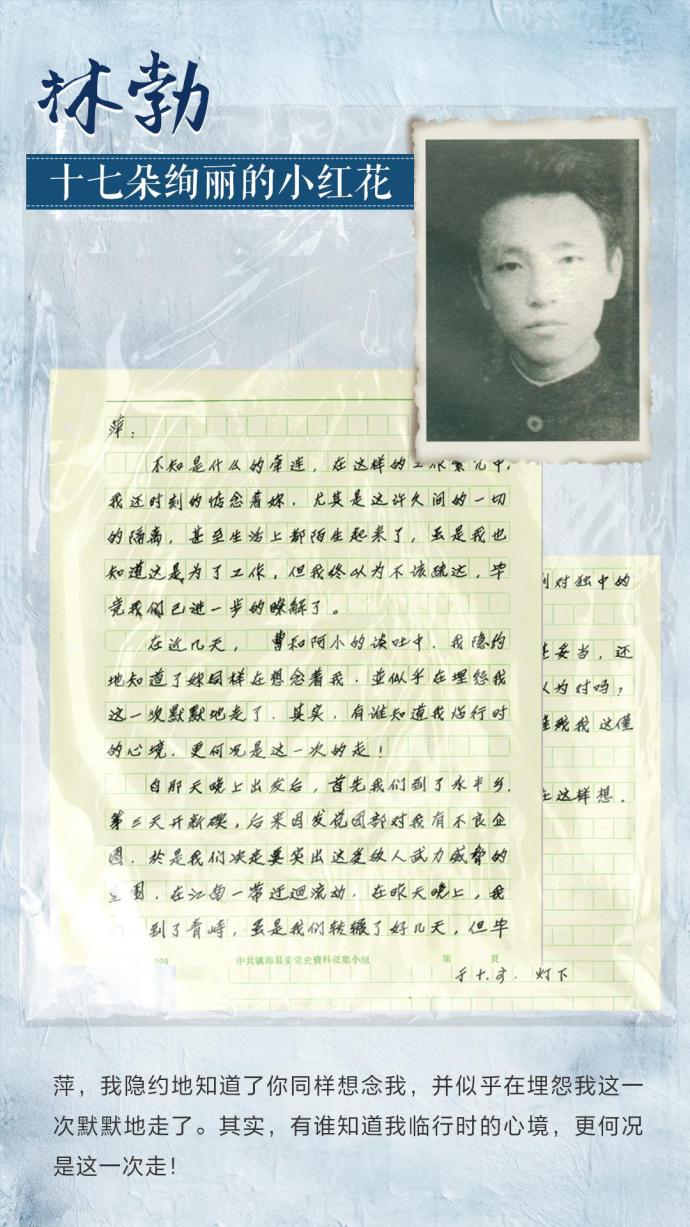 林勃
十七朵绚丽的小红花
萍：
不知是什么的牵连，在这样的工作繁忙中，
我还时刻的惦念着妳．尤其是这许久间的一切
的隔离，甚至生活上都陌生起来了，虽是我也
知道这是为了工作，但我终以为不该疏远，毕
竟我们已进一步的瞭解了。
在近几天， 曹和阿小的谈吐中．我隐约
地知道了妳同样在想念着我．並似乎在埋怨我
这一次默默地走了．其实．有谁知道我临行时
的心境．更何况是这一次的走！
自那天晚上出发后，首先我们到了永丰乡．
第三天开新碶，后来因发觉团部对我有不良企
图．於是我们决定要突出这受敌人武力威胁的
围．在江南一带迂迴流动．在昨天晚上，我
到了青峙，虽是我们转辗了好几天，但毕
中共镇海县委党史资料征集小组 第 页
对独中的
妥当，还
认为对吗，
我这僅
在这样想．
于十.  灯下
萍，我隐约地知道了你同样想念我，并似乎在埋怨我这一
次默默地走了。其实，有谁知道我临行时的心境，更何况
是这一次走！